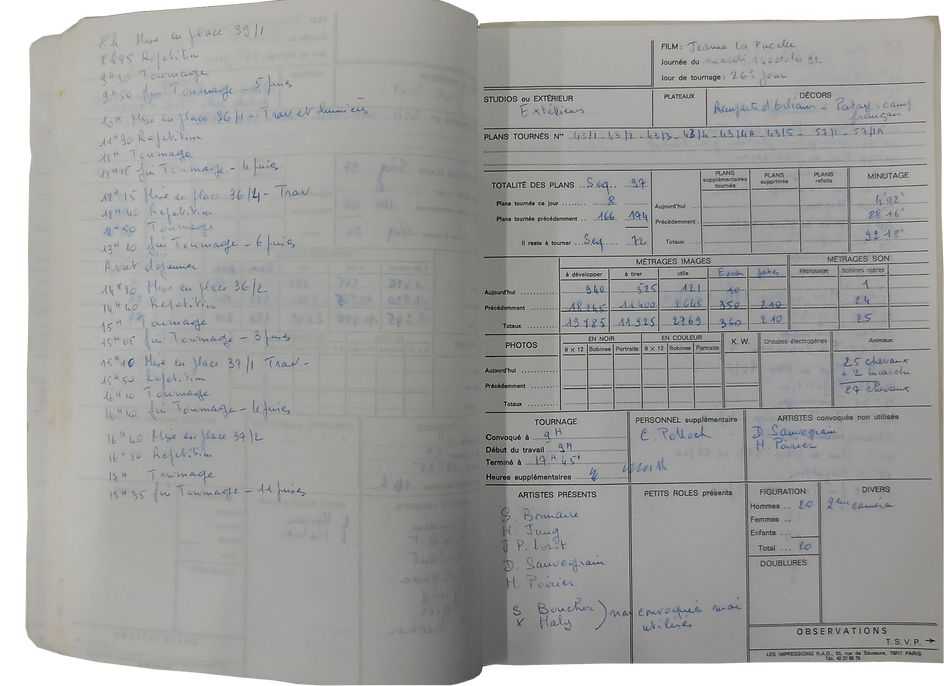 8h Mise en place 39/1
8h25 Repetition
9H30 Tournage
9H50 fin Tournage - 5 prises
Mise en place 36/1 - Trav et lumières
11H30 Repetition
12H Tournage
12H15 fin Tournage - 4 prises
12H15 Mise en place 36/4 - Trav
12H40 Repetition
12H50 Tournage
13H10 fin Tournage - 6 prises
Avant dejeuner
14H20 Mise en place 36/2
14H40 Repetition
15H Tournage
15H05 fin Tournage - 3 prises
15H10 Mise en place 37/1 Trav -
15H50 Repetition
16H10 Tournage
16H40 fin Tournage - 4 prises
16H40 Mise en place 37/2
16H50 Repetition
17H Tournage
fin Tournage - 11 prises
FILM : Jeanne La Pucelle
Journée du mardi 13 octobre 92
Jour de tournage : 26e Jour
STUDIOS ou EXTÉRIEUR
Extérieurs
PLATEAUX
DÉCORS
Remparts d'Orléans - camp
français
PLANS TOURNÉS Nos 43/1 - 43/2 - 43/3 - 43/4 - 43/4A - 43/5 - 57/1 - 57/1A
TOTALITÉ DES PLANS Seq. 97
Plans tournés ce jour 8
Plans tournés précédemment 166 174
Il reste à tourner Seq. 72
PLANS supplémentaires tournés
PLANS supprimés
PLANS refaits
MINUTAGE
Aujourd'hui 4'02"
Précédemment 88'16"
Totaux 92'18"
MÉTRAGES IMAGES
MÉTRAGES SON
à développer à tirer utile Repiquage Bobines mères
Aujourd'hui 940 525 121 10 1
Précédemment 18845 11400 2648 350 210 24
Totaux 19785 11925 2769 360 210 25
PHOTOS
EN NOIR
EN COULEUR
K.W.
Groupes électrogènes
Animaux
9 x 12 Bobines Portraits 9 x 12 Bobines Portraits
Aujourd'hui
Précédemment
Totaux
25 chevaux
+ 2
27 chevaux
TOURNAGE
Convoqué à 9H
Début du travail 9H
Terminé à 17H 45'
Heures supplémentaires
PERSONNEL supplémentaire
C. Pollock
ARTISTES convoqués non utilisés
D. Sauvegrain
M. Poirier
ARTISTES PRÉSENTS
S. Bonnaire
M. Jung
J.P. Lorit
D. Sauvegrain
M. Poirier
S. Boucher
X Maly
non convoqués mais
utilisés
PETITS ROLES présents
FIGURATION
Hommes 20
Femmes
Enfants
Total 20
DOUBLURES
DIVERS
2ème caméra
OBSERVATIONS
T.S.V.P. →
LES IMPRESSIONS R.A.D., 75017 PARIS